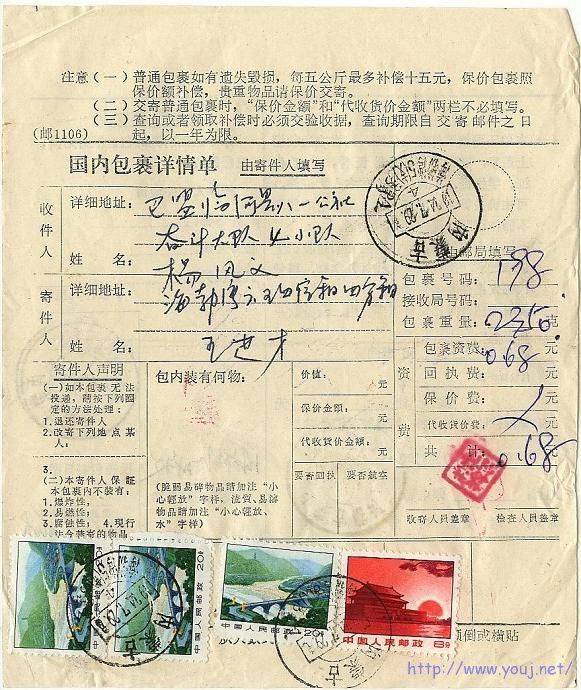 注意(一)普通包裹如有遗失毁损,每五公斤最多补偿十五元,保价包裹照
保价额补偿,贵重物品请保价交寄。
(二)交寄普通包裹时,“保价金额”和“代收货价金额”两栏不必填写。
(三)查询或者领取补偿时必须交验收据,查询期限自交寄邮件之日
(邮1106) 起,以一年为限。
国内包裹详情单 由寄件人填写
收件人
详细地址:巴盟临河县八一公社
奋斗大队 小队
姓名:杨
寄件人
详细地址:海勃湾
姓名:王进才
由邮局填写
包裹号码:198
接收局号码:
包裹重量:2350克
资费
包裹资费:0.68元
回执费:元
保价费:元
代收货价费:元
共计:0.68元
收寄人员盖章 检查人员盖章
寄件人声明
(一)如本包裹无法
投递,请按下列圈
定的方法处理:
1.退还寄件人
2.改寄下列地点某
人:
3.
(二)本寄件人保证
本包裹内不装有:
1.爆炸性,
2.易燃性,
3.腐蚀性;4.现行
法令禁寄的物品
包内装有何物:
(脆弱易碎物品请加注“小
心轻放”字样,流质、易溶
物品请加注“小心轻放、
水”字样)
价值:元
保价金额:元
代收货价金额:元
要寄回执 要寄航空
内蒙古
内蒙古
内蒙古
中国人民邮政 20分
中国人民邮政 20分
中国人民邮政 20分
中国人民邮政 8分
倒或横贴
http://www.youj.net/